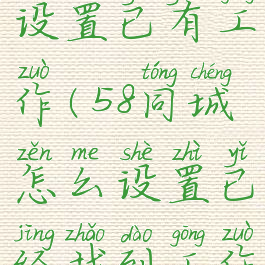 设置已有工
zuò tóng chéng
作(58同城
zěn me shè zhì yǐ
怎么设置已
jīng zhǎo dào gōng zuò
经找到工作